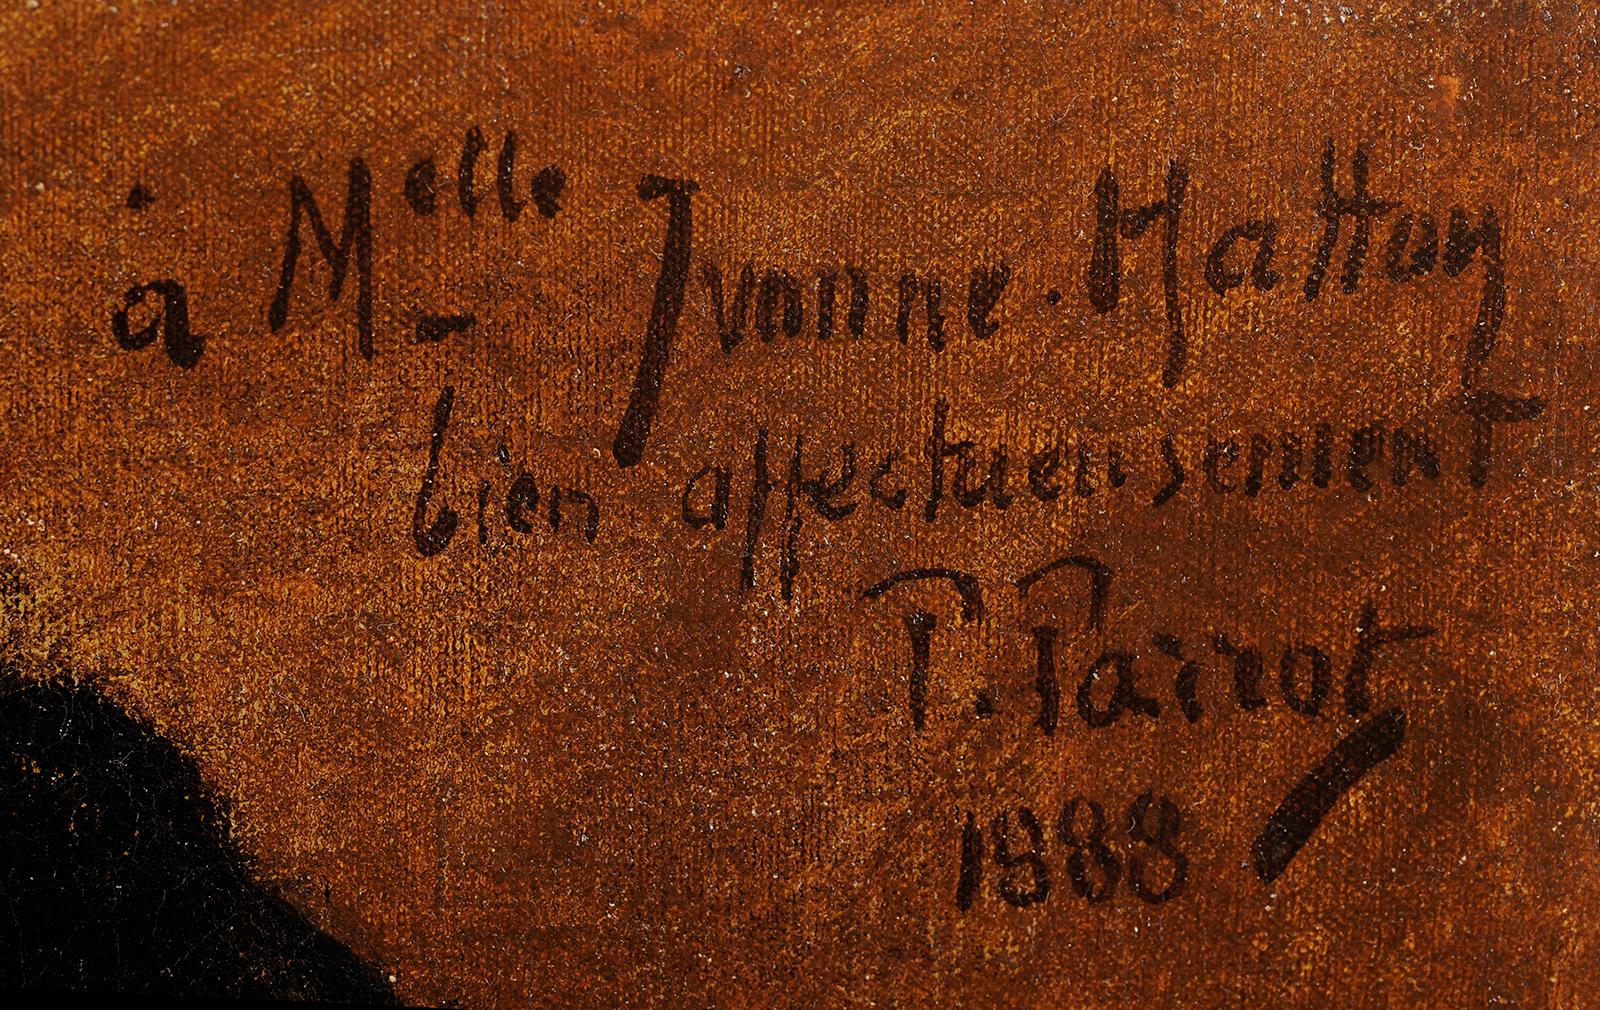 à Melle Yvonne. Mattey
bien affectueusement
P. Pairot
1888